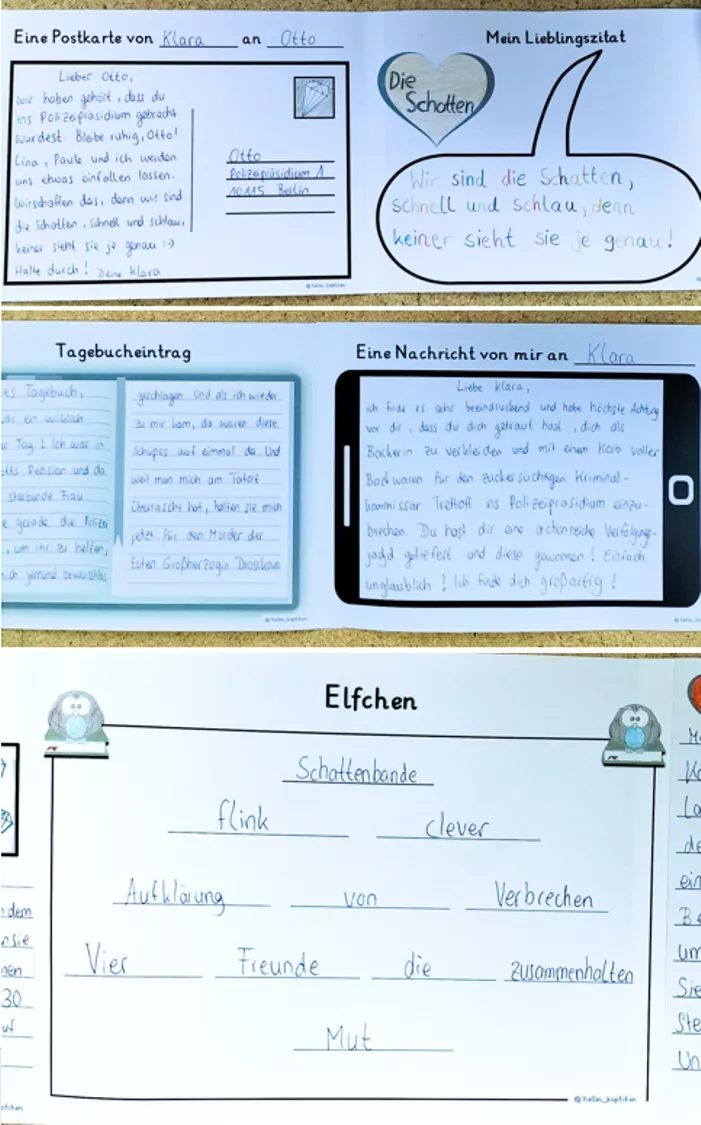 Eine Postkarte von Klara an Otto
Lieber Otto,
wir haben gehört, dass du
ins Polizeipräsidium gebracht
wurdest. Bleibe ruhig, Otto!
Lina, Paule und ich werden
uns etwas einfallen lassen.
Wir schaffen das, denn wir sind
die Schatten, schnell und schlau,
keiner sieht sie je genau :-)
Halte durch! Deine Klara
Otto
Polizeipräsidium 1
10115 Berlin
@helles_köpfchen
Mein Lieblingszitat
Die
Schatten
Wir sind die Schatten,
schnell und schlau, denn
keiner sieht sie je genau!
Tagebucheintrag
es Tagebuch,
ar ein wirklich
r Tag! Ich war in
tts Pension und da
sterbende Frau
e gerade die Polizei
, um ihr zu helfen,
ich jemand bewusstlos
geschlagen. Und als ich wieder
zu mir kam, da waren diese
Schupos auf einmal da. Und
weil man mich am Tatort
überrascht hat, halten sie mich
jetzt für den Mörder der
toten Großherzogin Droskowa
@helles_köpfchen
Eine Nachricht von mir an Klara
Liebe Klara,
ich finde es sehr beeindruckend und habe höchste Achtung
vor dir, dass du dich getraut hast, dich als
Bäckerin zu verkleiden und mit einem Korb voller
Backwaren für den zuckersüchtigen Kriminal-
kommissar Trettoff ins Polizeipräsidium einzu-
brechen. Du hast dir eine actionreiche Verfolgungs-
jagd geliefert und diese gewonnen! Einfach
unglaublich! Ich finde dich großartig!
@helles_k
Elfchen
Schattenbande
flink clever
Aufklärung von Verbrechen
Vier Freunde die zusammenhalten
Mut
@helles_köpfchen
dem
sie
nen
30
uf
pfchen
Ka
La
de
ein
Be
um
Sie
Ste
Un